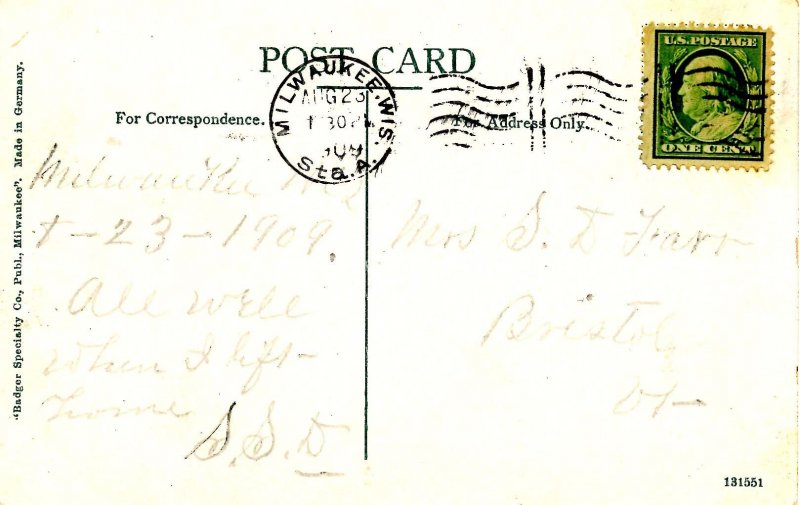 POST CARD
U.S. POSTAGE
MILWAUKEE, WIS.
AUG 23
1909
Sta. A.
For Correspondence.
For Address Only.
ONE CENT
Milwaukee Wis
8-23-1909.
All well
when I left
home
S. S. D
Mrs S. D Farr
Bristol
Vt
"Badger Specialty Co., Publ., Milwaukee". Made in Germany.
131551